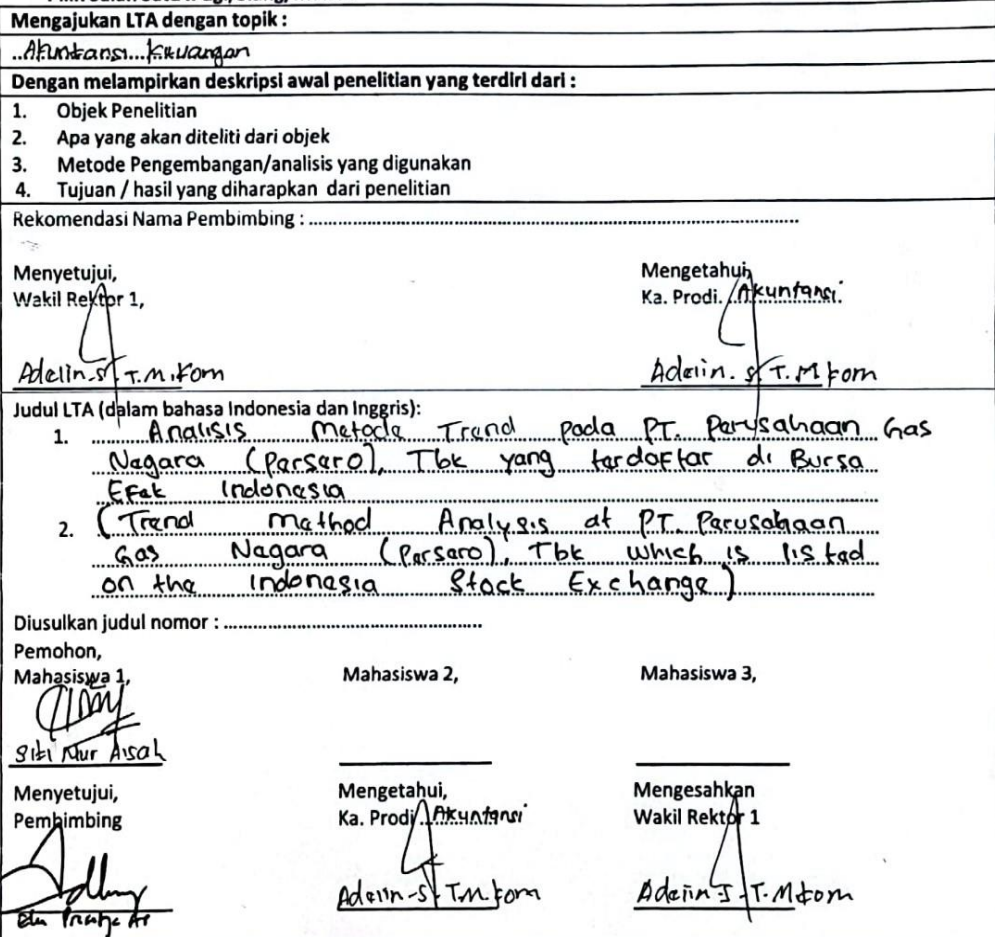 Mengajukan LTA dengan topik :
..Akuntansi...Keuangan
Dengan melampirkan deskripsi awal penelitian yang terdiri dari :
1. Objek Penelitian
2. Apa yang akan diteliti dari objek
3. Metode Pengembangan/analisis yang digunakan
4. Tujuan / hasil yang diharapkan dari penelitian
Rekomendasi Nama Pembimbing : ....................
Menyetujui, Mengetahui,
Wakil Rektor 1, Ka. Prodi. Akuntansi.
Adelin.S.T.M.Kom Adelin.S.T.M.Kom
Judul LTA (dalam bahasa Indonesia dan Inggris):
1. Analisis Metode Trend pada PT. Perusahaan Gas
Negara (Persero), Tbk yang terdaftar di Bursa
Efek Indonesia
2. (Trend Method Analysis at PT. Perusahaan
Gas Negara (Persero), Tbk which is listed
on the Indonesia Stock Exchange)
Diusulkan judul nomor : ....................
Pemohon,
Mahasiswa 1, Mahasiswa 2, Mahasiswa 3,
Siti Nur Aisah
Menyetujui, Mengetahui, Mengesahkan
Pembimbing Ka. Prodi. Akuntansi Wakil Rektor 1
Adelin.S.T.M.Kom Adelin.S.T.M.Kom